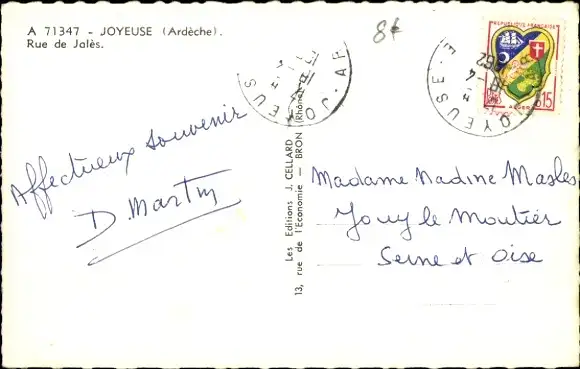 A 71347 - JOYEUSE (Ardèche).
Rue de Jalès.
8f
RÉPUBLIQUE FRANÇAISE
0,15
ALGER
JOYEUSE
Affectueux souvenir
D. Martin
Les Editions J. CELLARD
13, rue de l'Economie — BRON (Rhône)
Madame Nadine Masles
Jouy le Moutier
Seine et Oise